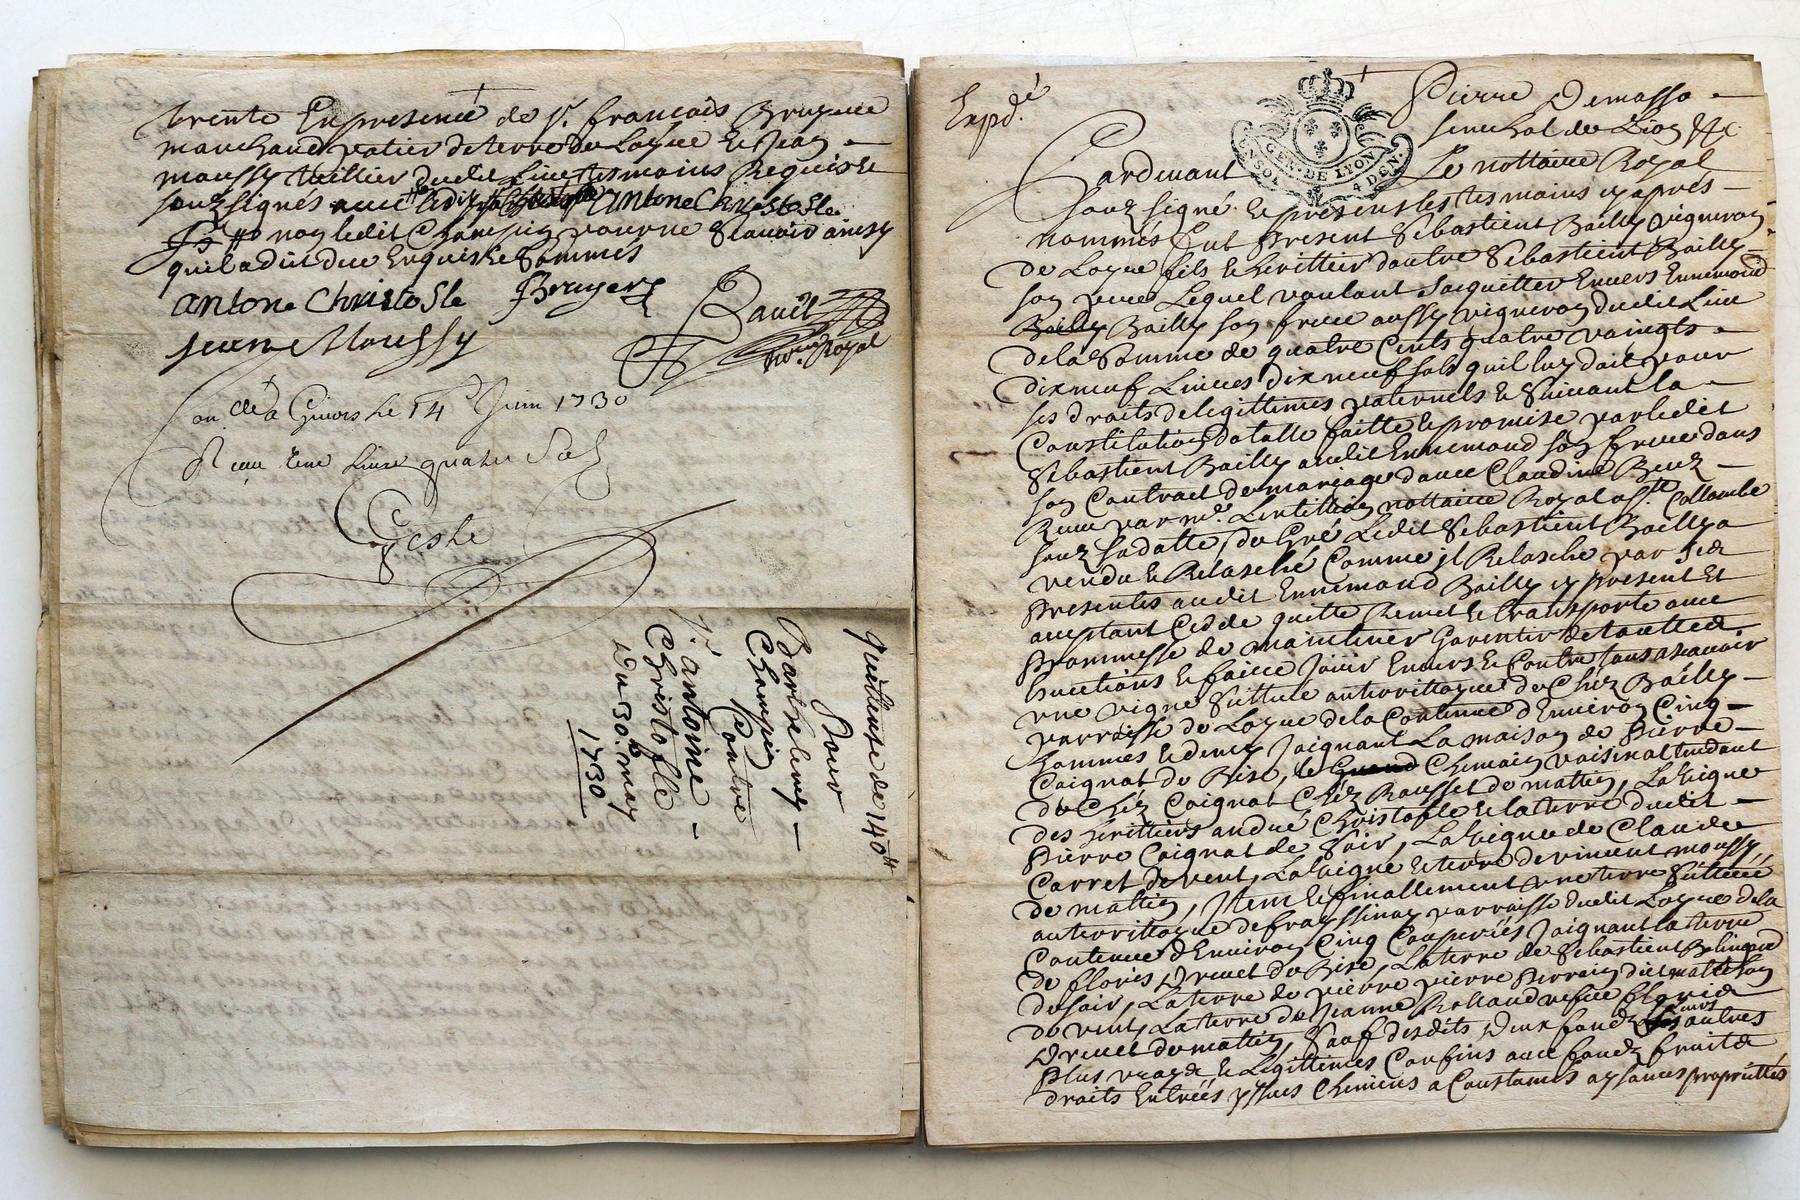 trente En presence de Sr. francois Bruyere
marchand potier de terre de Loyre et Jean
moussy tuillier dudit Lieu tesmoins Requis et
souzsignés avec ledit antone Christofle
Et non ledit Champin pour ne scavoir ainsy
quil a dit dee Enquis et Sommés
antone Christofle Bruyere
Jean Moussy
Royal
con.llé a Givors le 14e Juin 1730
Receu une Livre quatre Solz
Geste
quittance de 140 tt
Pour
Barthelemy
Champin
Contre
Sr. antoine
Christofle
Du 30e may
1730
Expd.é
GEN. DE LYON
4 DEN.
Pierre Demasso
senechal de Lion &c
Pardevant Le nottaire Royal
souz signé et presents les tesmoins cy aprés
nommés fut Present Sebastient Bailly vigneron
de Loyre fils et herittier dautre Sebastient Bailly
son pere Lequel voulant Sacquitter Envers Ennemond
Bailly Bailly son frere aussy vigneron dudit Lieu
de la Somme de quatre Cents quatre vaingts
dix neuf Livres dix neuf sols quil luy doit pour
ses droits de legittimes paternels et Suivant la
Constitution dotalle faitte et promise par ledit
Sebastient Bailly audit Ennemond son frere dans
son Contract de mariage avec Claudine
Receu par me. nottaire Royal a Ste. Collombe
souz sa datte, de Gré Ledit Sebastient Bailly a
vendu et Relasché Comme il Relasche par les
Presentes audit Ennemond Bailly cy present Et
acceptant Cedde quitte Remet et transporte avec
Prommesse de maintenir Garentir de touttes
Evictions et faire Jouir Envers et Contre tous ascavoir
une vigne Sittuée au territtoyre de Chez Bailly
parroisse de Loyre de la Contenue d'Environ Cinq
hommes et demy Joignant La maison de Pierre
Coignat de Bise, le Grand Chemain voisinal tendant
de Chéz Coignat Chéz Rousset de mattin, La vigne
des herittiers andué Christofle et la terre dudit
Pierre Coignat de Soir, La vigne de Claude
Carret de vent, La vigne et terre de vincent moussy
de mattin, Item et finallement une terre Sittuée
au territtoyre de frayssinay parroisse dudit Loyre de la
Contenue d'Environ Cinq Couperiés Joignant la terre
de floris Drevet de Bise, La terre de Sebastient
de soir, La terre de pierre pierre Perrain dit
de vent, La terre de Jeanne Rolland vefve floris
Drevet de mattin, Sauf desdits deux fondz leurs autres
Plus vrays et Legittimes Confins avec fondz fruits
droits Entrées yssues Chemins a Coustumés aysances proprietés